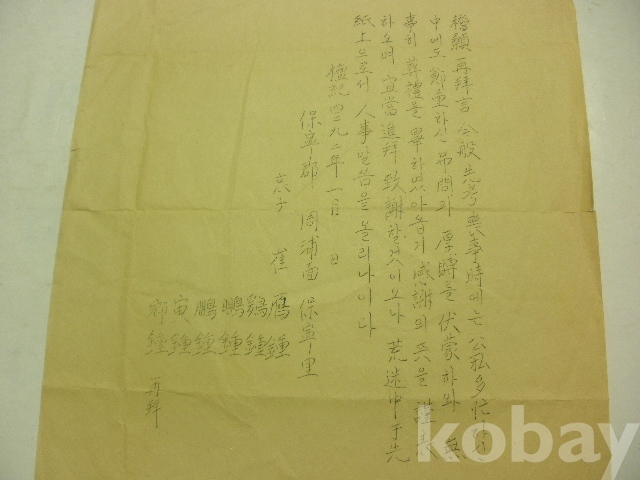 稽顙再拜言 今般先考喪事時에는 公私多忙하신
中에도 鄭重하신 弔問과 厚賻를 伏蒙하와 無
事히 葬禮를 畢하였아옵기 感謝의 뜻을 謹表
하오며 宜當進拜致謝할것이오나 荒迷中于先
紙上으로서 人事말씀을 올리나이다
檀紀四二九二年 一月 日
保寧郡 周浦面 保寧里
哀子 崔 鴈鍾
鷄鍾
鵬鍾
寅鍾
再拜
kobay